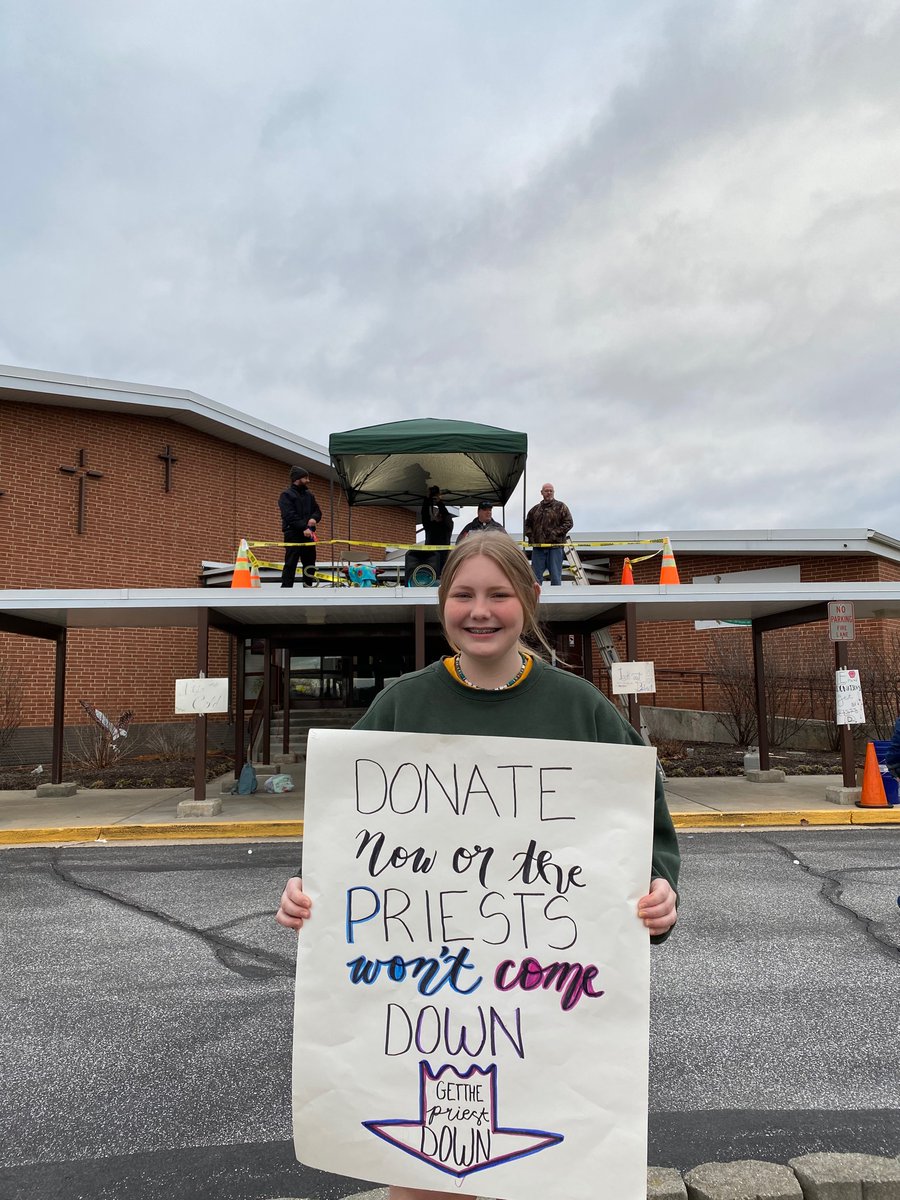 NO
PARKING
FIRE
LANE
DONATE
Now or the
PRIESTS
won't come
DOWN
GET THE
priest
DOWN